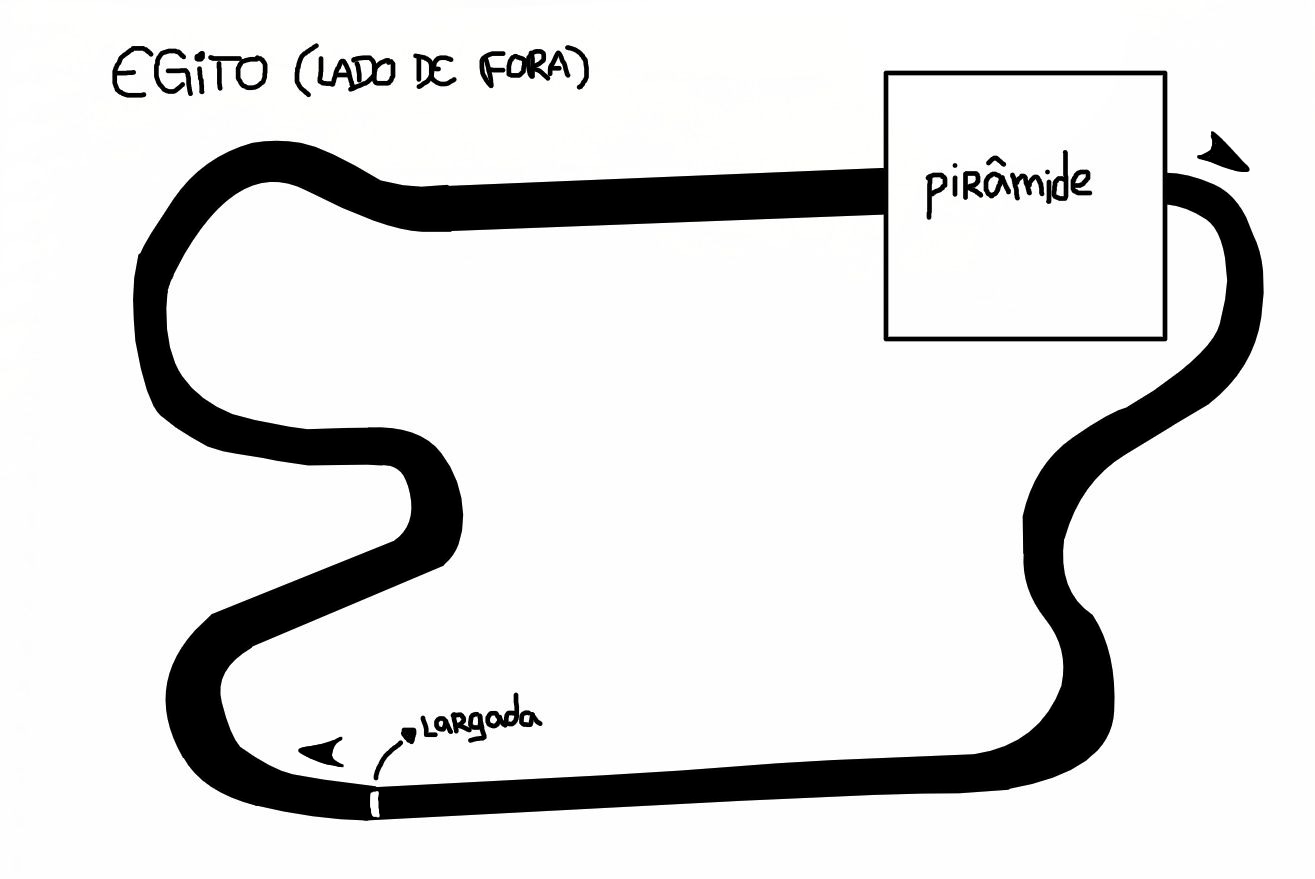 EGiTO (LADO DE FORA)
piRâmide
LaRgada